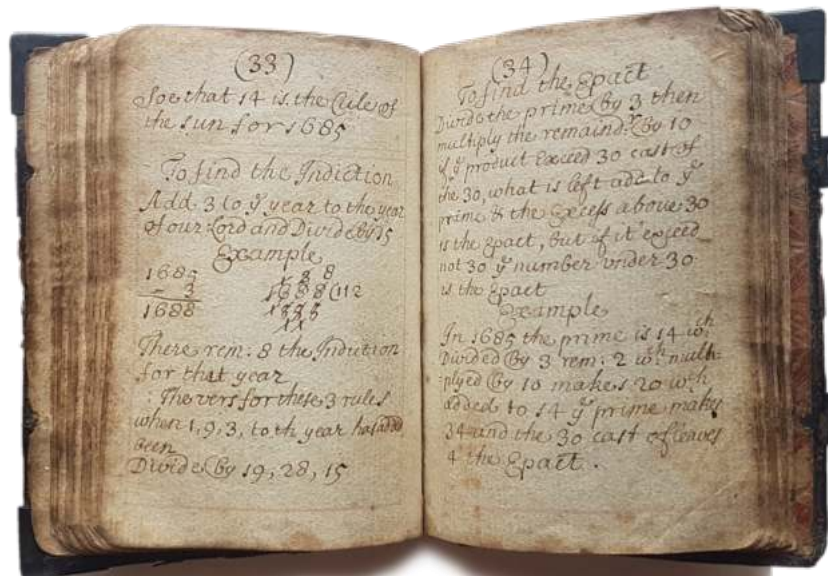 (33)
Soe that 14 is the Cicle of
the sun for 1685
To find the Indiction
Add 3 to yͤ year to the year
of our Lord and Divide by 15
Example
1685
- 3
1688
1 3 8
1688 (112
1555
11
There rem: 8 the Indiction
for that year
: The vers for these 3 rules
when 1, 9, 3, to th year has add
been
Divide by 19, 28, 15
(34)
To find the Epact
Divide the prime by 3 then
multiply the remaindʳ by 10
if yͤ product Exceed 30 cast of
the 30, what is left add to yͤ
prime & the Excess above 30
is the Epact, But if it exceed
not 30 yͤ number under 30
is the Epact
Example
In 1685 the prime is 14 wᶜʰ
Divided by 3 rem: 2 wᶜʰ multi-
plyed by 10 makes 20 wᶜʰ
added to 14 yͤ prime makes
34 and the 30 cast of leaves
4 the Epact.